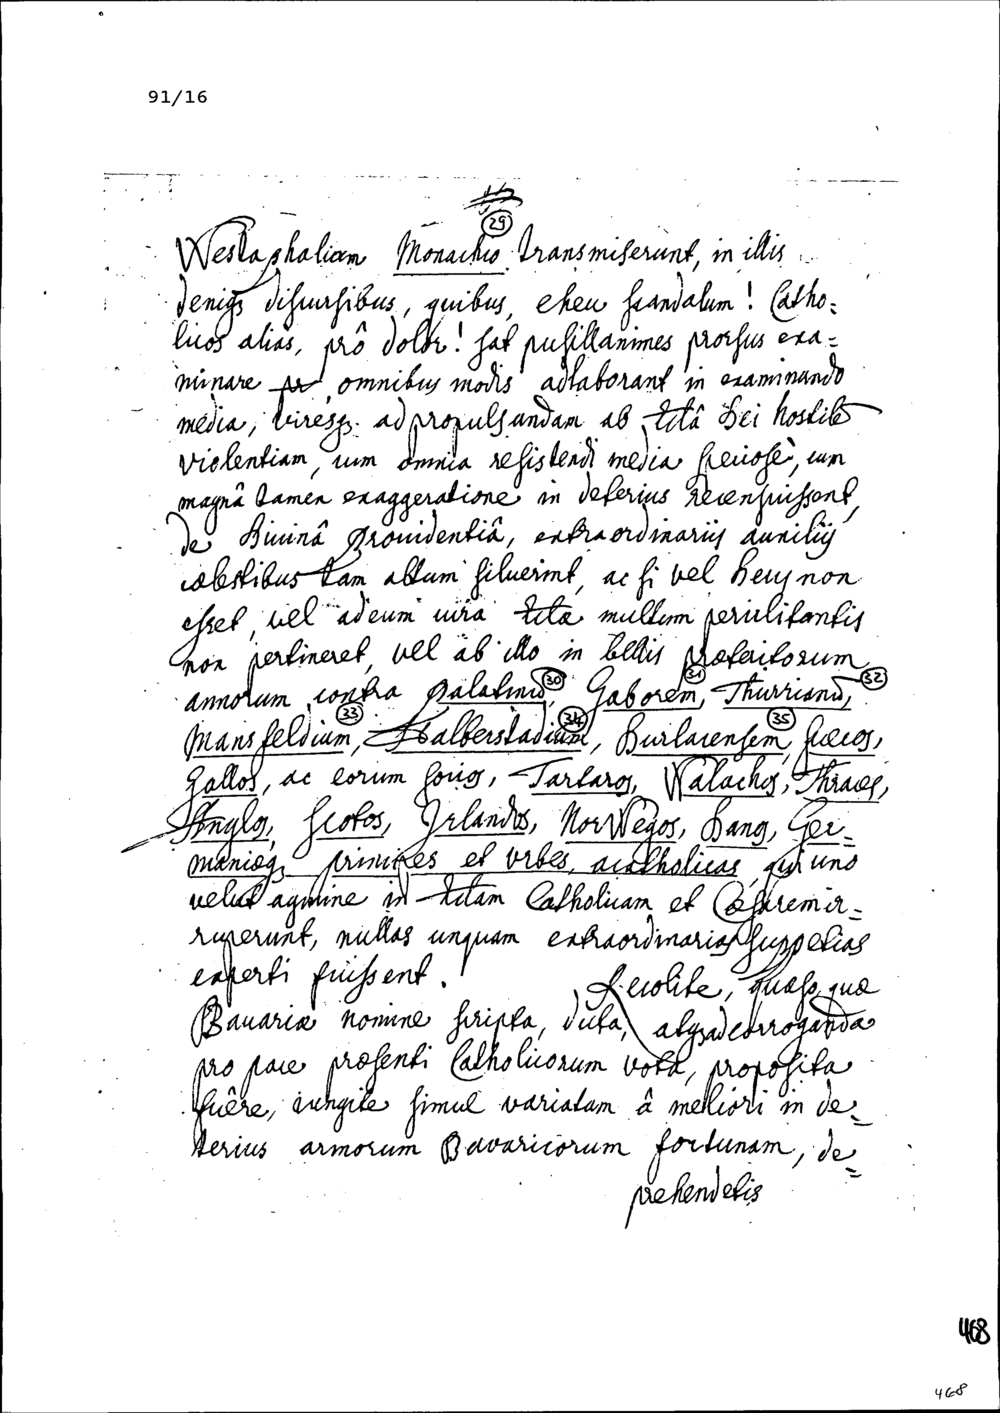 91/16
29
Westaphaliam Monachio transmiserunt, in illis
deniqz discursibus, quibus, eheu scandalum! Catho=
licos alias, prô dolor! sat pusillanimes prorsus exa=
minare omnibus modis adlaborant in examinando
media, viresqz ad propulsandam ab Ecclâ Dei hostilẽ
violentiam, cum omnia resistendi media speciosè, cum
magnâ tamen exaggeratione in deterius recensuissent,
de Divinâ Providentiâ, extraordinariis auxiliis
cœlestibus tam altum siluerint, ac si vel Deus non
esset, vel ad eum cura Ecclæ multum periclitantis
non pertineret, vel ab illo in bellis præteritorum
30 31 32
annorum contra Palatinũ, Gaborem, Thurrianũ,
33 34 35
Mansfeldium, Halberstadium, Durlacensem, Suecos,
Gallos, ac eorum socios, Tartaros, Walachos, Thraces,
Anglos, Scotos, Irlandos, Norwegos, Danos, Ger=
maniæqz principes et urbes, acatholicas, qui uno
velut agmine in Ecclam Catholicam et Cæsarem ir=
ruperunt, nullas unquam extraordinarias suppetias
experti fuissent. Recolite, quæso, quæ
Bavariæ nomine scripta, dicta, atqz ad corroganda
pro pace præsenti Catholicorum vota, proposita
fuêre, iungite simul variatam â meliori in de=
terius armorum Bavaricorum fortunam, de=
prehendetis
468
468